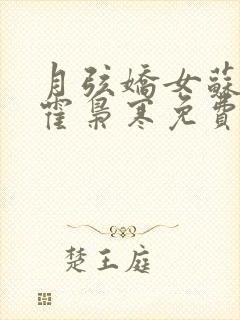 月弦嬌女蘇
霍梟寒免費
楚王庭